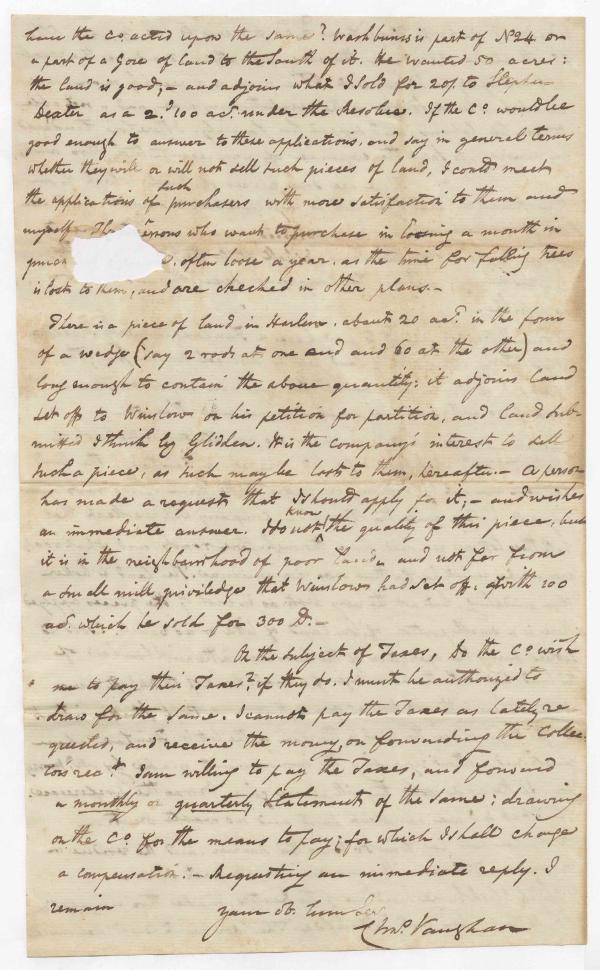 have the Co. acted upon the same? Washburns is part of No 24 or
a part of a Gore of land to the South of it. He wanted 50 acres:
the land is good,- and adjoins what I sold for 20/. to Stephen
Dexter as a 2d. 100 acs. under the Resolve. If the Co. would be
good enough to answer to these applications, and say in general terms
whether they will or will not sell such pieces of land, I could meet
the applications of such purchasers with more satisfaction to them and
myself. The persons who want to purchase in loosing a month in
often loose a year, as the time for falling trees
is lost to them, and are checked in other plans.-
There is a piece of land in Harlem, about 20 acs. in the form
of a wedge (say 2 rods at one end and 60 at the other) and
long enough to contain the above quantity: it adjoins land
set off to Winslow on his petition for partition, and land sub-
mitted I think by Glidden. It is the company's interest to sell
such a piece, as such may be lost to them, hereafter.- A person
has made a request that I should apply for it;- and wishes
an immediate answer. I do not know the quality of this piece, but
it is in the neighbourhood of poor land, and not far from
a small mill priviledge that Winslow had set off, with 100
acs. which he sold for 300 D.-
On the subject of Taxes, Do the Co. wish
me to pay their Taxes? if they do, I must be authorized to
draw for the same. I cannot pay the Taxes as lately re-
quested, and receive the money, on forwarding the Collec-
tors rect. I am willing to pay the Taxes, and forward
a monthly or quarterly statement of the same; drawing
on the Co. for the means to pay; for which I shall charge
a compensation.- Requesting an immediate reply. I
remain your ob. hum Ser
Chas. Vaughan